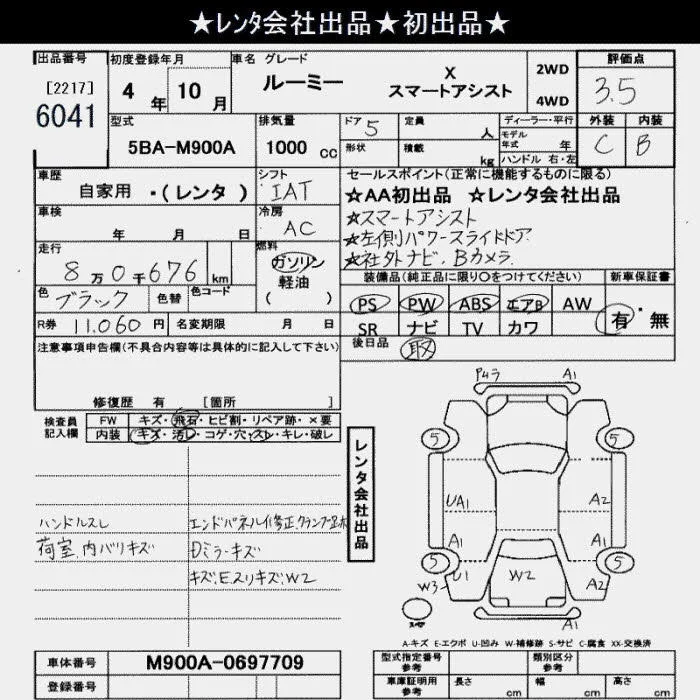 ★レンタ会社出品★初出品★
出品番号 初度登録年月 車名 グレード 2WD 評価点
[2217] 4 年 10 月 ルーミー X スマートアシスト 4WD 3.5
6041
型式 排気量 ドア 5 定員 人 ディーラー・平行 外装 内装
5BA-M900A 1000 cc 形状 積載 kg モデル年式 年 C B
ハンドル 右・左
車歴 シフト セールスポイント(正常に機能するものに限る)
自家用 ・(レンタ ) IAT ★AA初出品 ★レンタ会社出品
車検 冷房 ★スマートアシスト
年 月 日 AC ★左側パワースライドドア
走行 燃料 ★社外ナビ、Bカメラ
8 万 0 千 676 km ガソリン 装備品(純正品に限り○をつけてください) 新車保証書
軽油
( )
色 ブラック 色替 色コード PS PW ABS エアB AW 有・無
R券 11,060 円 名変期限 月 日 SR ナビ TV カワ
注意事項申告欄(不具合内容等は具体的に記入して下さい) 後日品 取
修復歴 有 [箇所 ]
検査員記入欄 FW キズ・飛石・ヒビ割・リペア跡・×要
内装 キズ・汚レ・コゲ・穴・スレ・キレ・破レ
レンタ会社出品
ハンドルスレ エンドパネルイ修正、クランプ跡
荷室、内バリキズ Dミラーキズ
キズ、Eスリキズ、W2
P4ラ A1
5 5
UA1 A2
A1 A1
5 5
W3 U1 W2 A2
A1
A-キズ E-エクボ U-凹み W-補修跡 S-サビ C-腐食 XX-交換済
車体番号 M900A-0697709 型式指定番号参考 類別区分参考
登録番号 車庫証明用参考 長さ cm 幅 cm 高さ cm